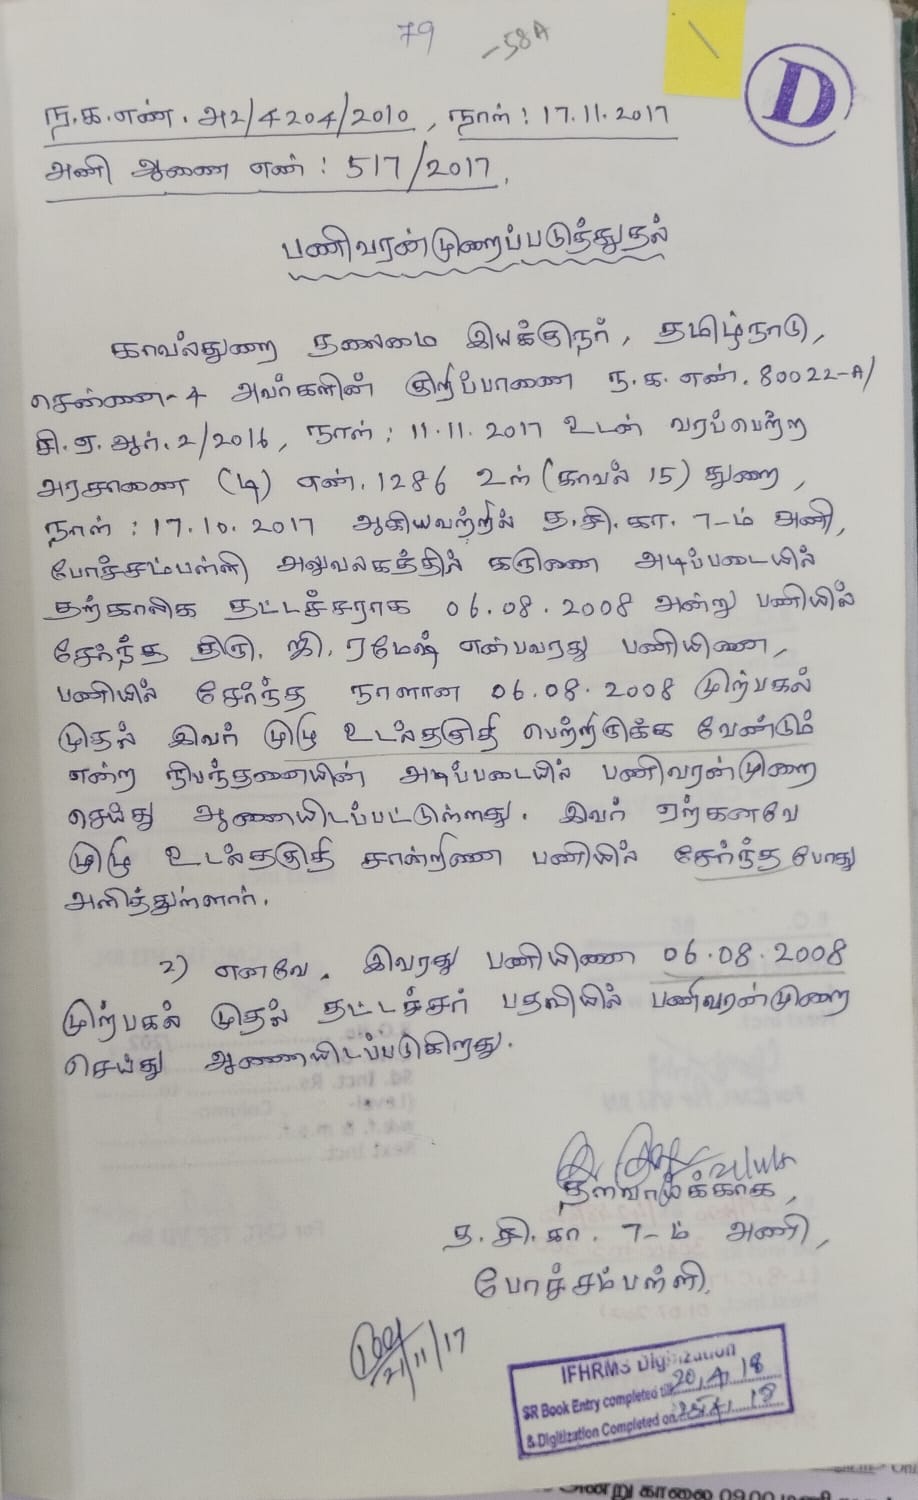 79
-58A
D
ந.க.எண். அ2/4204/2010, நாள் : 17.11.2017
அணி ஆணை எண் : 517/2017.
பணிவரன்முறைப்படுத்துதல்
காவல்துறை தலைமை இயக்குநர், தமிழ்நாடு,
சென்னை-4 அவர்களின் குறிப்பாணை ந.க.எண். 80022-A/
சி.ஏ.ஆர்.2/2016, நாள் : 11.11.2017 உடன் வரப்பெற்ற
அரசாணை (டி) எண்.1286 உள் (காவல் 15) துறை,
நாள் : 17.10.2017 ஆகியவற்றில் த.சி.கா. 7-ம் அணி,
போச்சம்பள்ளி அலுவலகத்தில் கருணை அடிப்படையில்
தற்காலிக தட்டச்சராக 06.08.2008 அன்று பணியில்
சேர்ந்த திரு. ஜி. ரமேஷ் என்பவரது பணியினை,
பணியில் சேர்ந்த நாளான 06.08.2008 முற்பகல்
முதல் இவர் முழு உடல்தகுதி பெற்றிருக்க வேண்டும்
என்ற நிபந்தனையின் அடிப்படையில் பணிவரன்முறை
செய்து ஆணையிடப்பட்டுள்ளது. இவர் ஏற்கனவே
முழு உடல்தகுதி சான்றினை பணியில் சேர்ந்த போது
அளித்துள்ளார்.
2) எனவே, இவரது பணியினை 06.08.2008
முற்பகல் முதல் தட்டச்சர் பதவியில் பணிவரன்முறை
செய்து ஆணையிடப்படுகிறது.
தளவாய்க்காக,
த.சி.கா. 7-ம் அணி,
போச்சம்பள்ளி.
21/11/17
IFHRMS Digitization
SR Book Entry completed till 20.4.18
& Digitization Completed on
அன்று காலை 09.00 மணி